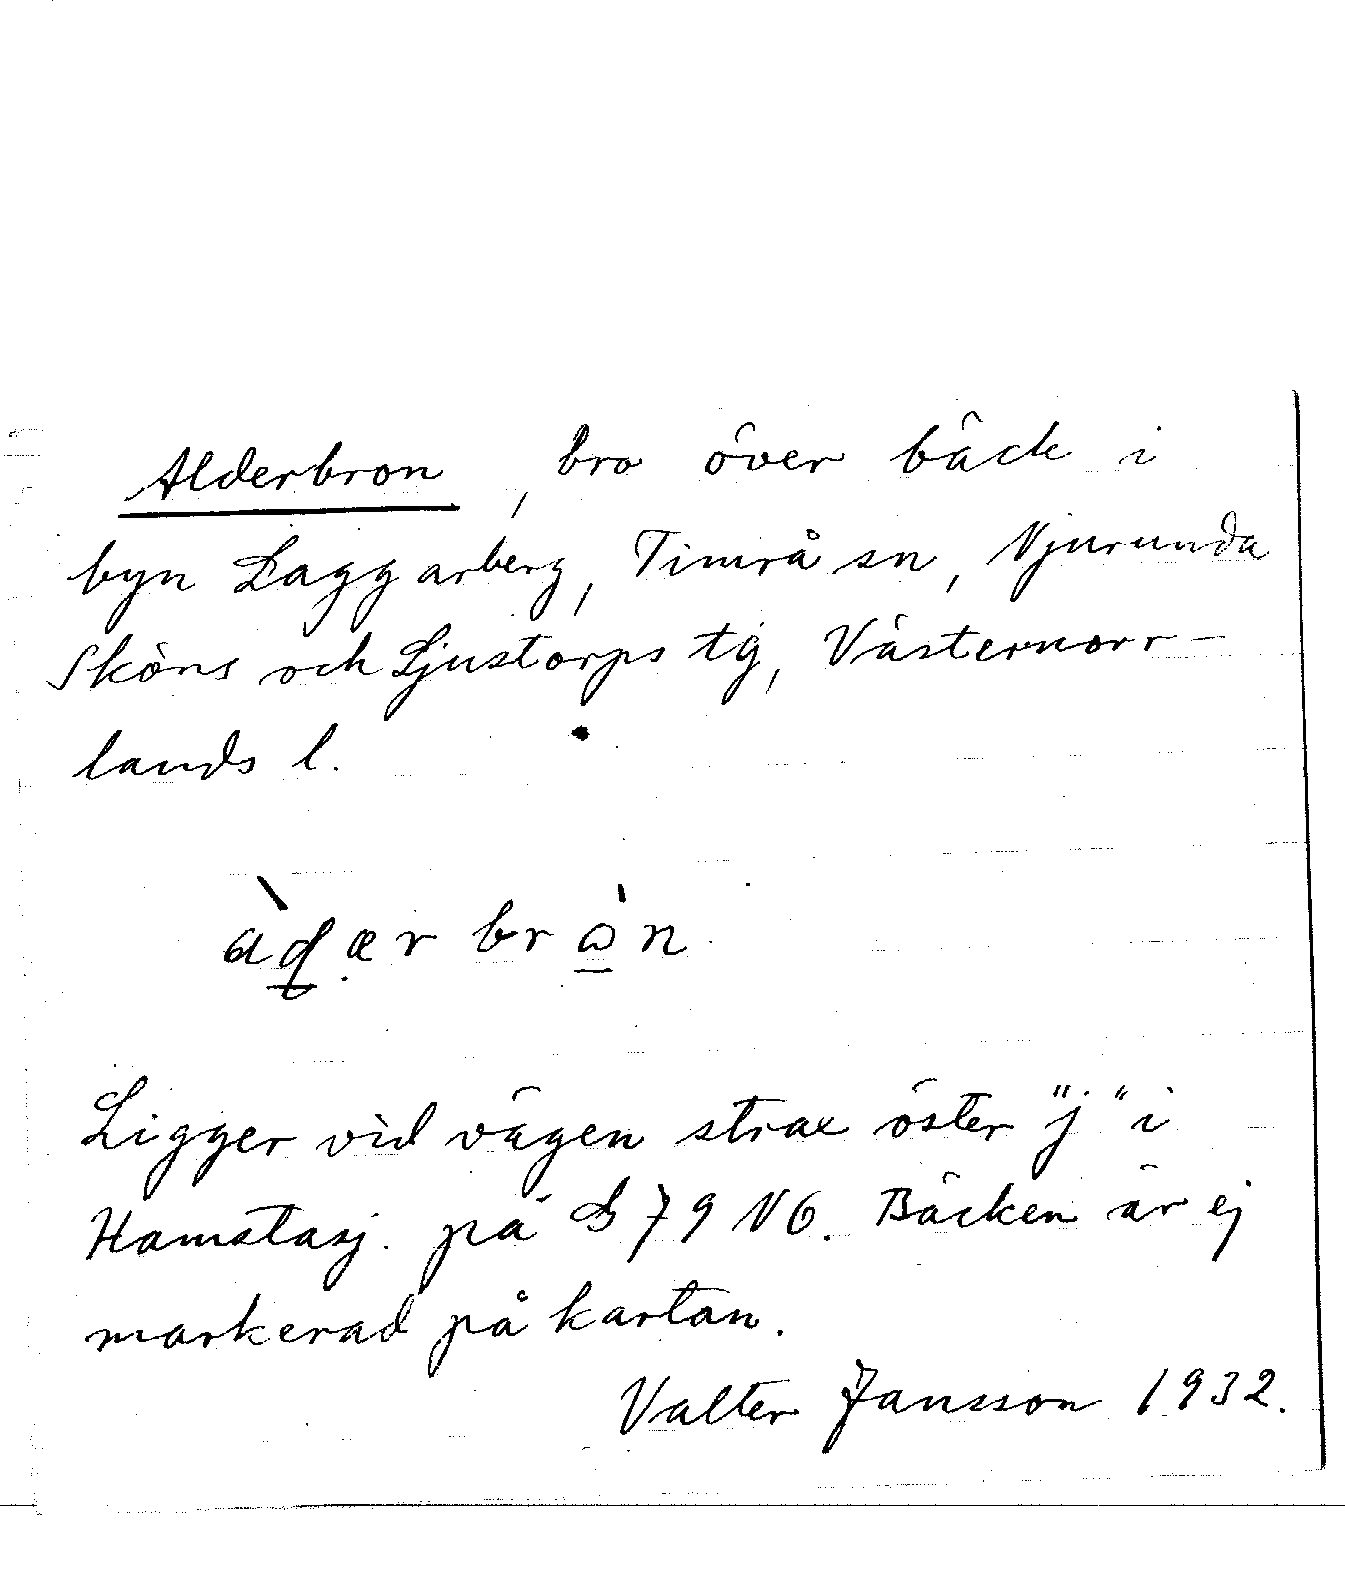 Alderbron, bro över bäck i
byn Laggarberg, Timrå sn, Njurunda
Sköns och Ljustorps tg, Västernorr-
lands l.
Ligger vid vägen strax öster "j" i
Hamstasj. på S 79 NO. Bäcken är ej
markerad på kartan.
Valter Jansson 1932.